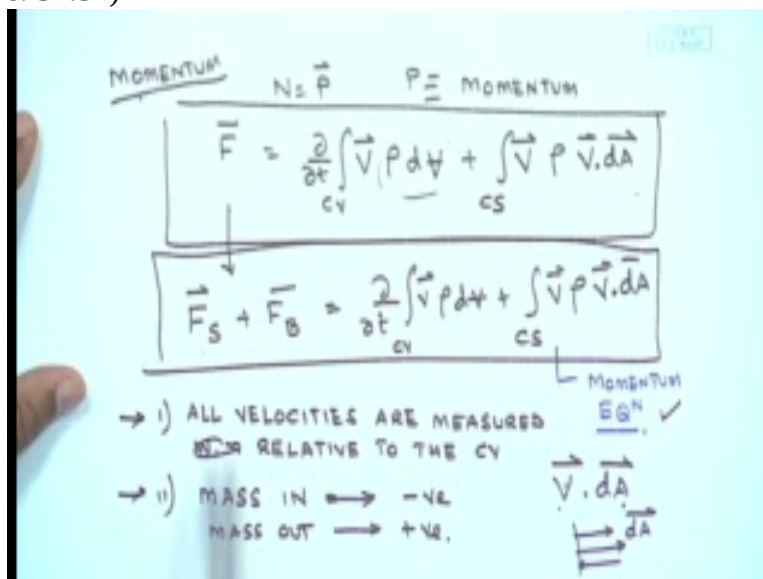 MOMENTUM
N = P⃗ P ≡ MOMENTUM
F̅ = ∂/∂t ∫ V⃗ ρ dV̶ + ∫ V⃗ ρ V⃗.dA⃗
CV CS
F⃗s + F̅B = ∂/∂t ∫ V⃗ ρ dV̶ + ∫ V⃗ ρ V⃗.dA̅
CV CS
MOMENTUM
EQᴺ. ✓
→ i) ALL VELOCITIES ARE MEASURED
RELATIVE TO THE CV
→ ii) MASS IN → -ve
MASS OUT → +ve.
V⃗ . dA⃗
dA⃗